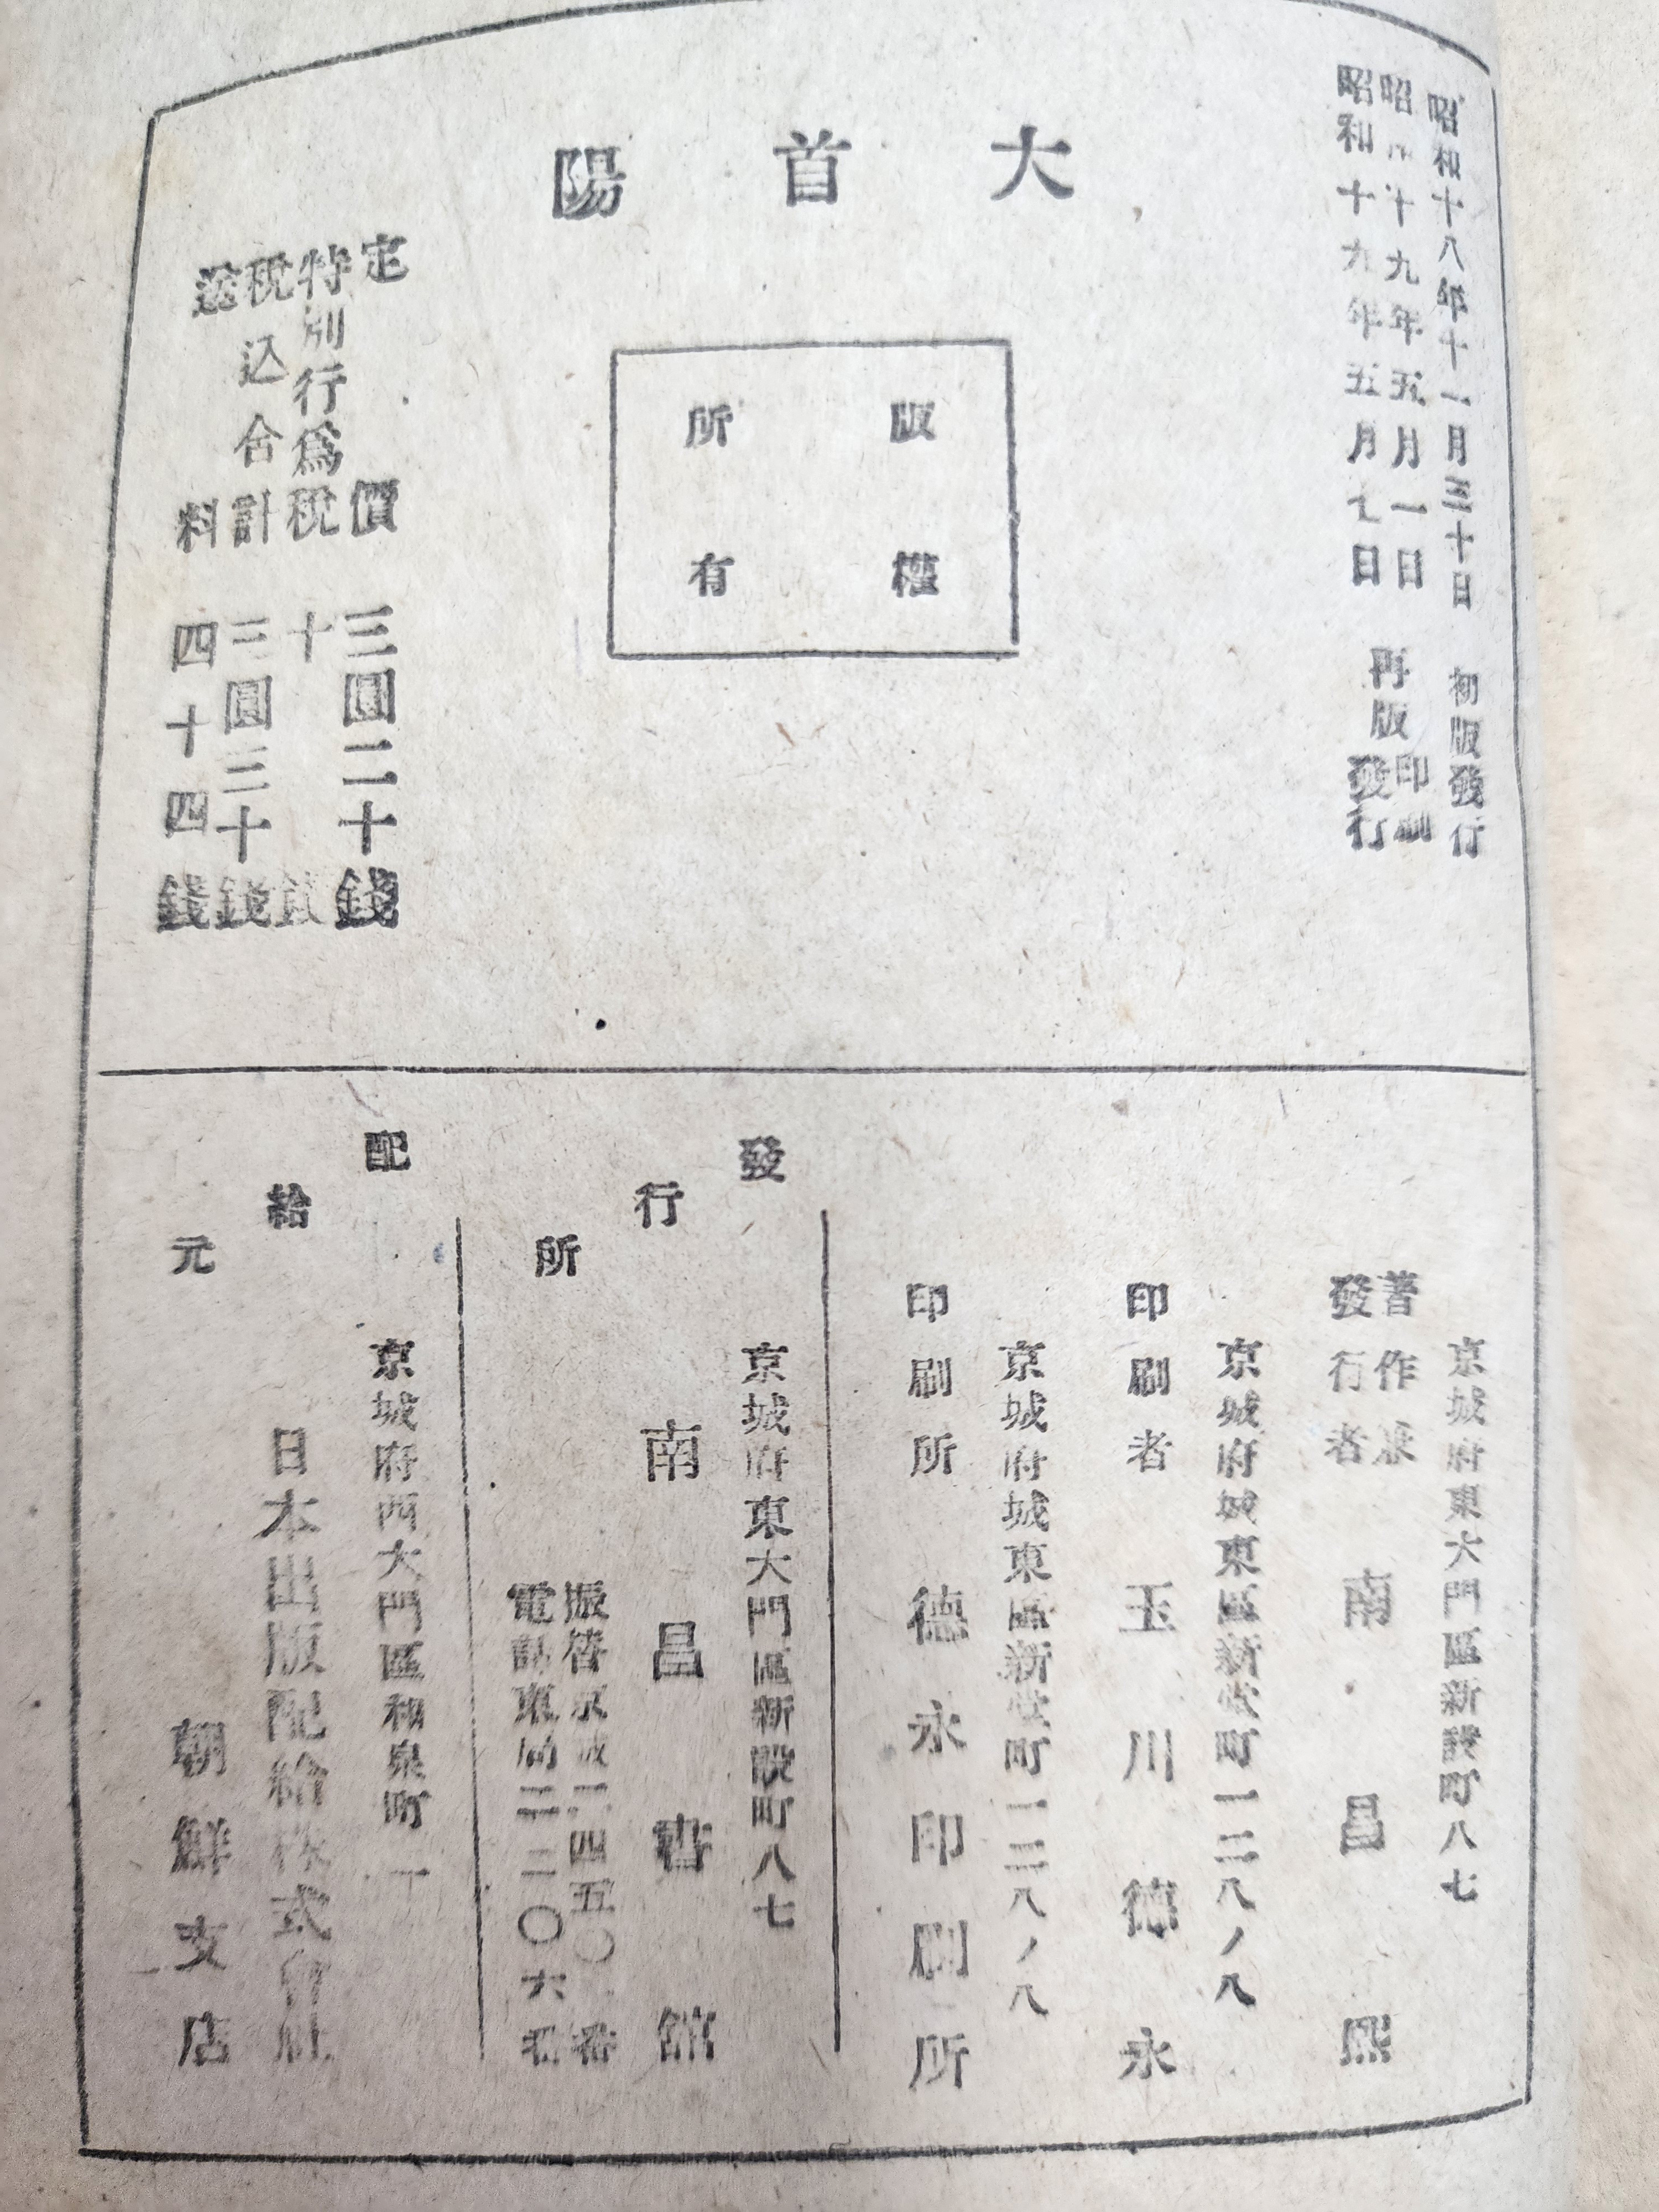 昭和十八年十一月三十日　初版發行
昭和十九年五月一日　再版印刷
昭和十九年五月七日　發行
大首陽
版權
所有
定價　三圓二十錢
特別行爲税　十錢
税込合計　三圓三十錢
送料　四十四錢
京城府東大門區新設町八七
著作兼
發行者　南昌熙
京城府城東區新堂町一二八ノ八
印刷者　玉川德永
京城府城東區新堂町一二八ノ八
印刷所　德永印刷所
發行所
京城府東大門區新設町八七
南昌書館
振替京城二四五〇番
電話東局二二〇六番
配給元
京城府西大門區和泉町一
日本出版配給株式會社
朝鮮支店